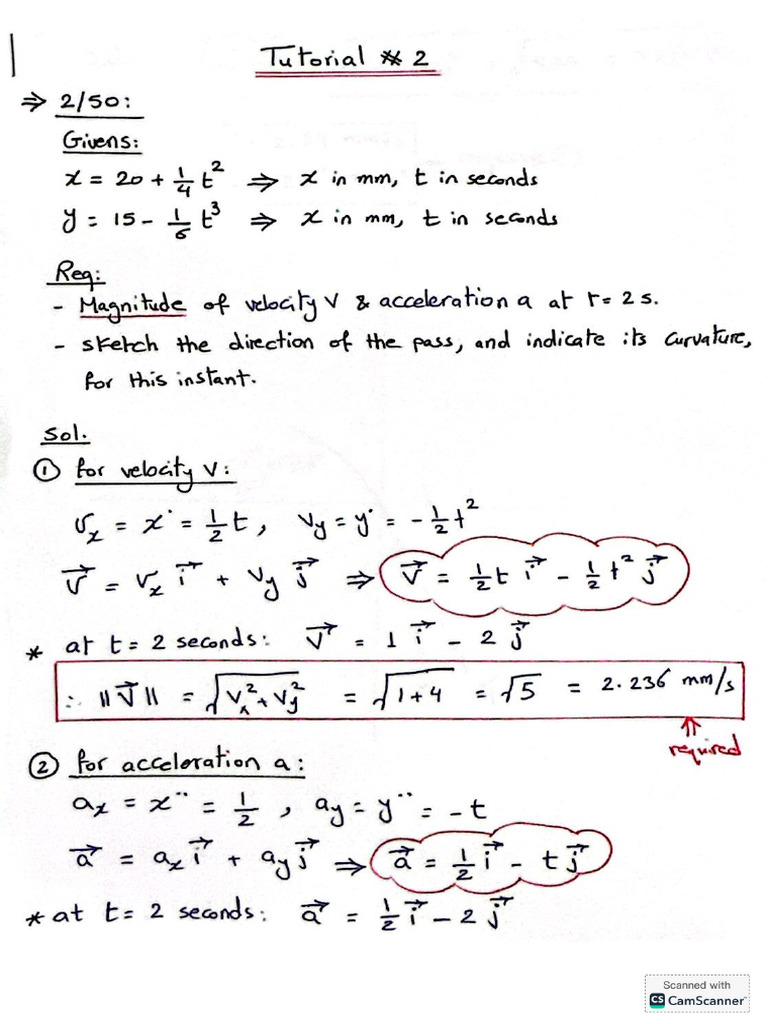 Tutorial # 2
⇒ 2/50:
Givens:
x = 20 + 1/4 t² ⇒ x in mm, t in seconds
y = 15 - 1/6 t³ ⇒ x in mm, t in seconds
Req:
- Magnitude of velocity V & acceleration a at t = 2 s.
- sketch the direction of the pass, and indicate its curvature,
for this instant.
Sol.
① for velocity V:
v_x = x˙ = 1/2 t, v_y = y˙ = - 1/2 t²
V⃗ = v_x i⃗ + v_y j⃗ ⇒ V⃗ = 1/2 t i⃗ - 1/2 t² j⃗
* at t = 2 seconds: V⃗ = 1 i⃗ - 2 j⃗
∴ ||V⃗|| = √(v_x² + v_y²) = √(1+4) = √5 = 2.236 mm/s
⇑
required
② for acceleration a:
a_x = x¨ = 1/2, a_y = y¨ = -t
a⃗ = a_x i⃗ + a_y j⃗ ⇒ a⃗ = 1/2 i⃗ - t j⃗
* at t = 2 seconds: a⃗ = 1/2 i⃗ - 2 j⃗
Scanned with
CS CamScanner